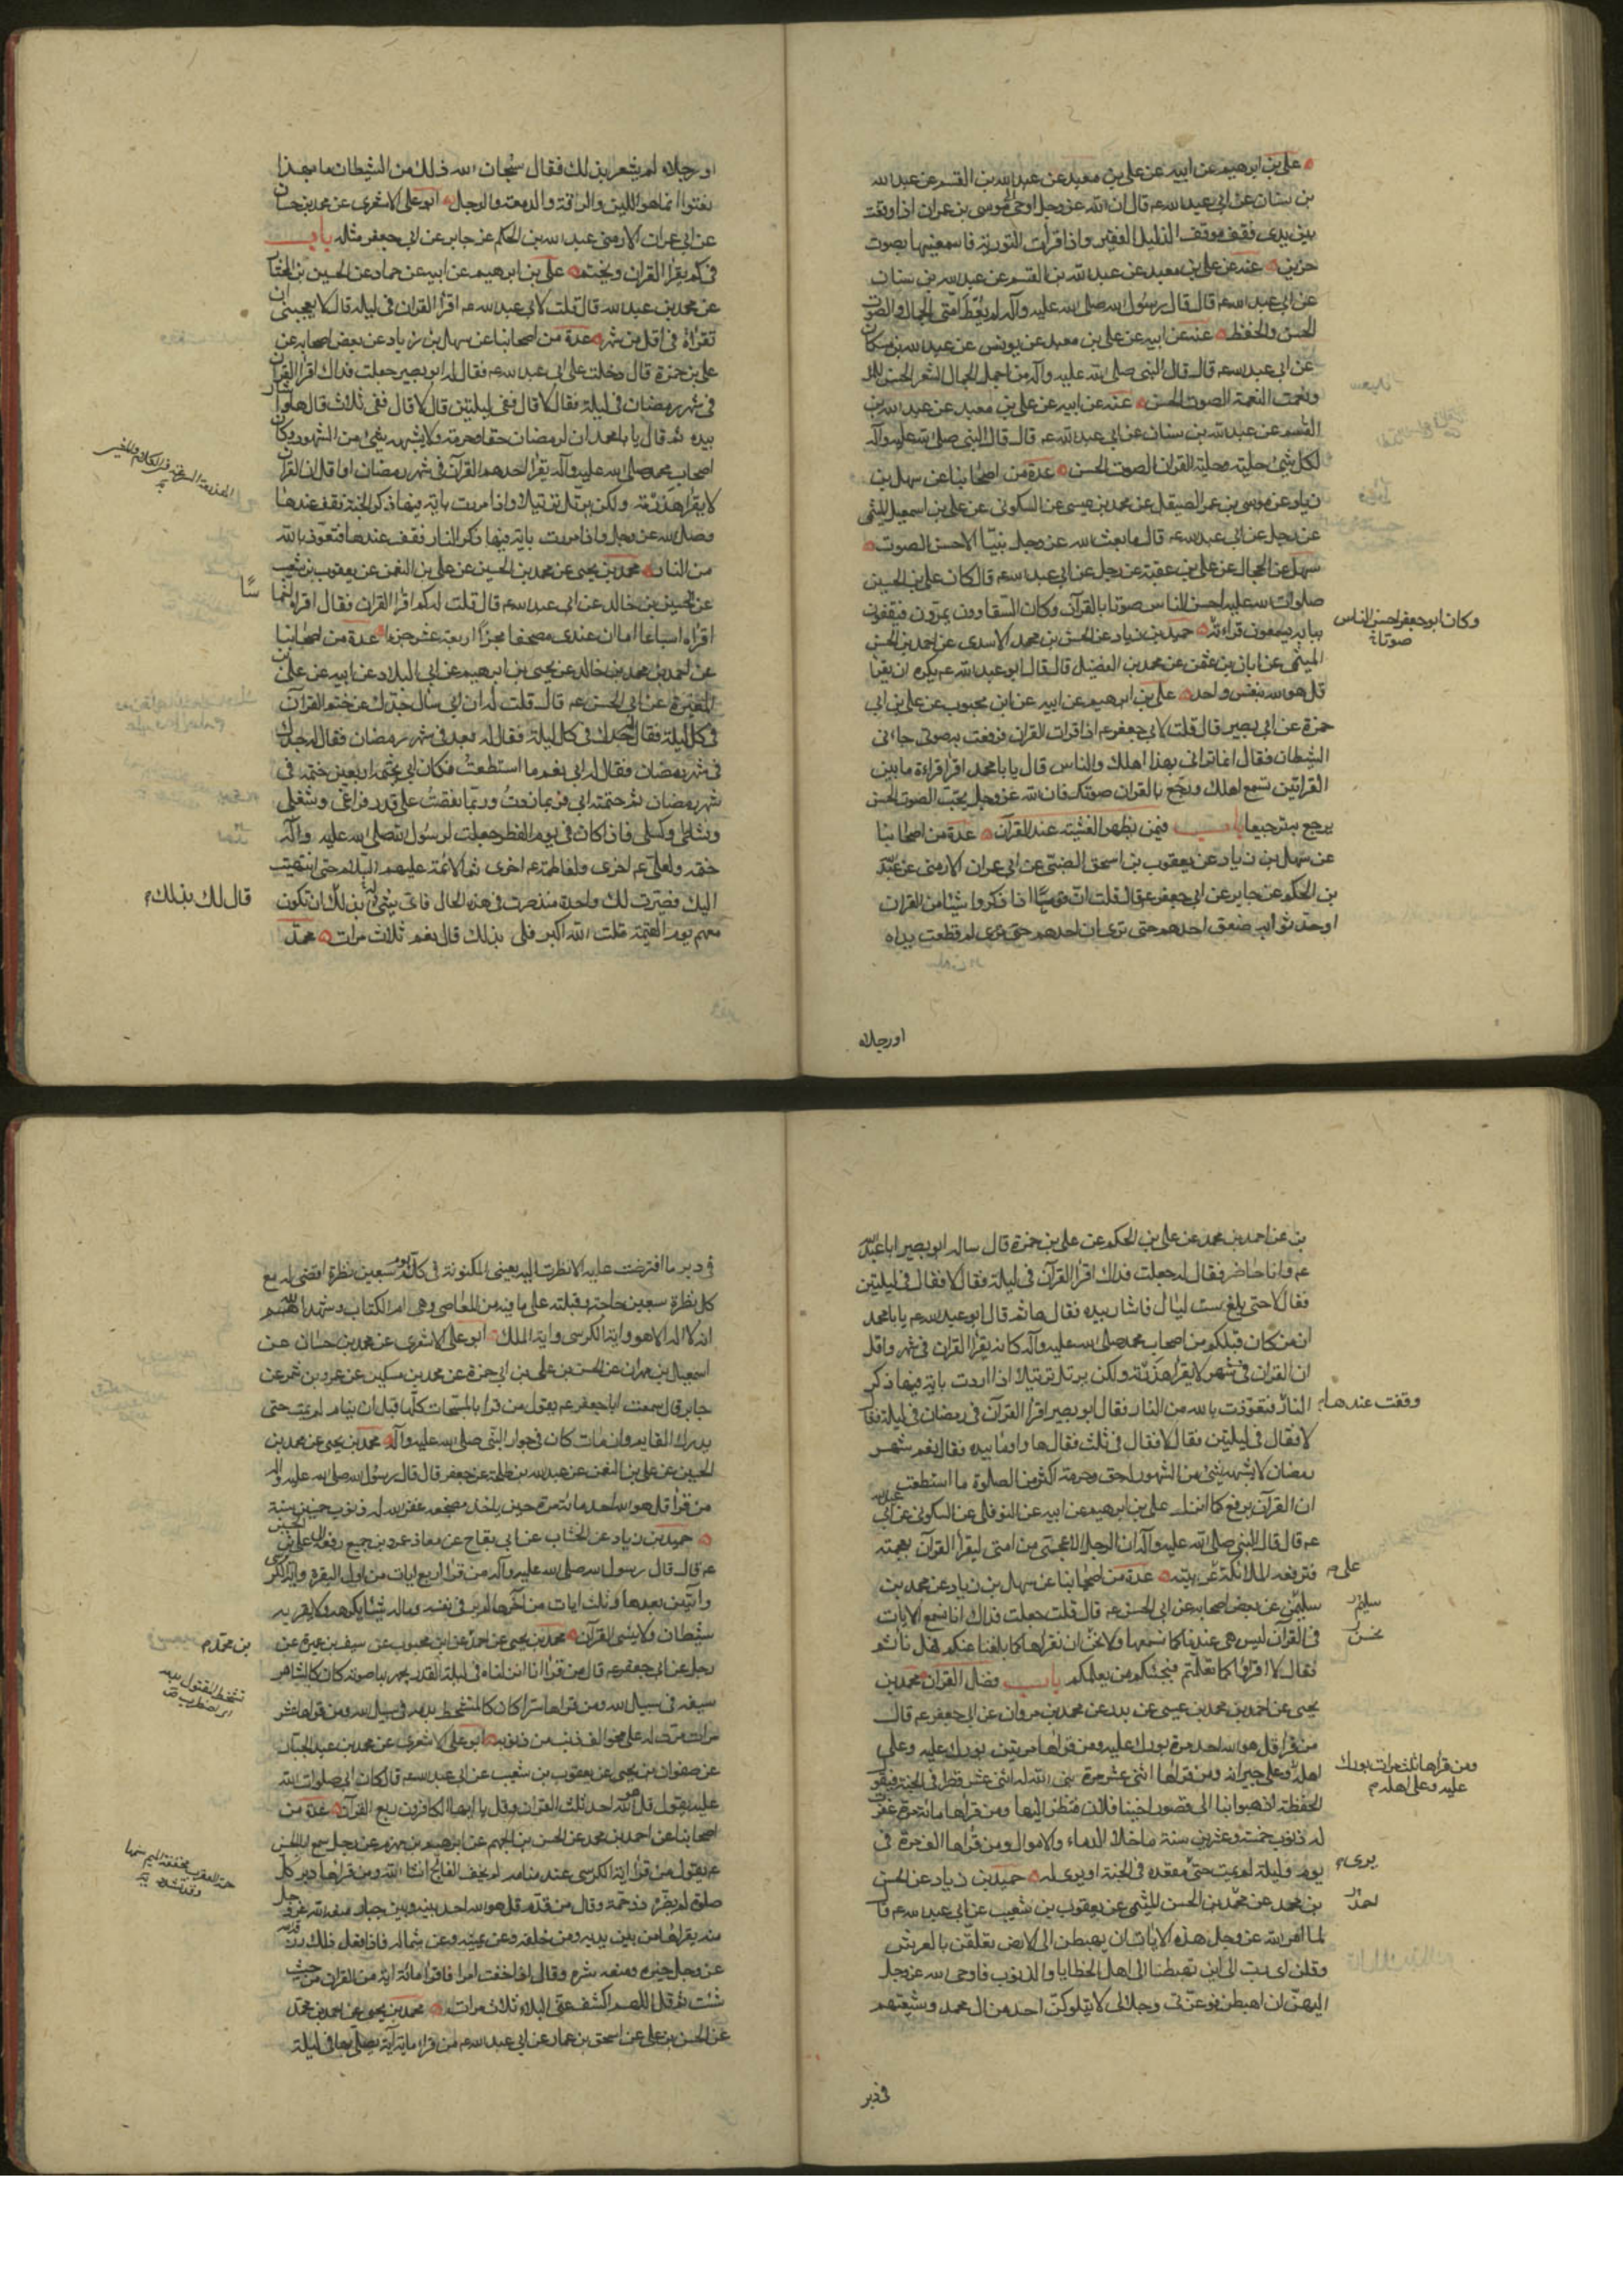 علي بن ابرهيم عن ابيه عن علي بن معبد عن عبد الله بن القسم عن عبد الله
بن سنان عن ابي عبد الله عم قال ان الله عز وجل اوحى لموسى بن عمران اذا وقفت
بين يدي فقف موقف الذليل الفقير واذا قرأت التورية فاسمعنيها بصوت
حزين عنه عن علي بن معبد عن عبد الله بن القسم عن عبد الله بن سنان
عن ابي عبد الله عم قال قال رسول الله صلى الله عليه وآله لم يعط امتي الجمال والصوت
الحسن والحفظ عنه عن ابيه عن علي بن معبد عن يونس عن عبد الله بن مسكان
عن ابي عبد الله عم قال قال النبي صلى الله عليه وآله من اجمل الجمال الشعر الحسن
ونغمت النغمة الصوت الحسن عنه عن ابيه عن علي بن معبد عن عبد الله بن
القسم عن عبد الله بن سنان عن ابي عبد الله عم قال قال النبي صلى الله عليه وآله
لكل شئ حلية وحلية القران الصوت الحسن عدة من اصحابنا عن سهل بن
زياد عن موسى بن عمر الصيقل عن محمد بن عيسى عن السكوني عن علي بن اسمعيل الميثمي
عن رجل عن ابي عبد الله عم قال ما بعث الله عز وجل نبيّا الا حسن الصوت
سهل عن الحجال عن علي بن عقبة عن رجل عن ابي عبد الله عم قال كان علي بن الحسين
صلوات الله عليه احسن الناس صوتا بالقرآن وكان السقاوون يمرون فيقفون
وكان ابو جعفر احسن الناس صوتا
ببابه يسمعون قراءته حميد بن زياد عن الحسن بن محمد الاسدي عن احمد بن الحسن
الميثمي عن ابان بن عثمن عن محمد بن الفضيل قال قال ابو عبد الله عم يكره ان يقرأ
قل هو الله بنفس واحد علي بن ابرهيم عن ابيه عن ابن محبوب عن علي بن ابي
حمزة عن ابي بصير قال قلت لابي جعفر عم اذا قرأت القران فرفعت به صوتي جاءني
الشيطان فقال انما ترائي بهذا اهلك والناس قال يا با محمد اقرا قراءة ما بين
القراتين تسمع اهلك ورجع بالقران صوتك فان الله عز وجل يحبّ الصوت الحسن
يرجع به ترجيعا باب فيمن يظهر الغشية عند القرآن عدة من اصحابنا
عن سهل بن زياد عن يعقوب بن اسحق الضبي عن ابي عمران الارمني عن عبد الله
بن الحكم عن جابر عن ابي جعفر عم قال قلت ان قومًا اذا ذكروا شيئا من القران
او حدثوا به صعق احدهم حتى ترى ان احدهم حتى يرى لم قطعت يداه
او رجلاه
او رجلاه لم يشعر بذلك فقال سبحان الله ذلك من الشيطان ما بهذا
نعتوا انما هو اللين والرقة والدمعة والوجل ابو علي الاشعري عن محمد بن حسان
عن ابي عمران الارمني عبد الله بن الحكم عن جابر عن ابي جعفر مثله باب
في كم يقرأ القران ويختم علي بن ابرهيم عن ابيه عن حماد عن الحسين بن المختار
عن محمد بن عبد الله قال قلت لابي عبد الله عم اقرأ القران في ليلة قال لا يعجبني ان
تقرأه في اقل من شهر عدة من اصحابنا عن سهل بن زياد عن بعض اصحابه عن
علي بن حمزة قال دخلت على ابي عبد الله عم فقال له ابو بصير جعلت فداك اقرأ القران
في شهر رمضان في ليلة فقال لا قال ففي ليلتين قال لا قال ففي ثلاث قال ها واشار
بيده ثم قال يا با محمد ان لرمضان حقا وحرمة ولا يشبهه شئ من الشهور وكان
اصحاب محمد صلى الله عليه وآله يقرأ احدهم القرآن في شهر رمضان او اقل ان القران
لا يقرأ هذرمة ولكن يرتل ترتيلا واذا مررت باية فيها ذكر الجنة فقف عندها
وسل الله عز وجل واذا مررت باية فيها ذكر النار فقف عندها وتعوّذ بالله
من النار محمد بن يحيى عن محمد بن الحسين عن علي بن النعمن عن يعقوب بن شعيب
عن الحسين بن خالد عن ابي عبد الله عم قال قلت له كم اقرأ القران فقال اقرأه اخماسًا
اقرأه اسباعا اما ان عندي مصحفا مجزّأ اربعة عشر جزءا عدة من اصحابنا
عن احمد بن محمد بن خالد عن يحيى بن ابرهيم عن ابي البلاد عن ابيه عن علي بن
المغيرة عن ابي الحسن عم قال قلت له ان ابي سأل جدك عن ختم القرآن
في كل ليلة فقال جدك في كل ليلة فقال له بعد في شهر رمضان فقال له جدك
في شهر رمضان فقال له ابي نعم ما استطعت فكان ابي يختمه اربعين ختمة في
شهر رمضان ثم ختمته ابي فربما زدت وربما نقصت على قدر فراغي وشغلي
ونشاطي وكسلي فاذا كان في يوم الفطر جعلت لرسول الله صلى الله عليه وآله
ختمة ولعلي عم اخرى ولفاطمة عم اخرى ثم الائمة عليهم السلام حتى انتهيت
اليك فصيرت لك واحدة منذ صرت في هذه الحال فاي شئ لي بذلك ان تكون
قال لك بذلك
معهم يوم القيمة قلت الله اكبر فلي بذلك قال نعم ثلاث مرات محمد
بن عن احمد بن محمد عن علي بن الحكم عن علي بن حمزة قال ساله ابو بصير ابا عبد الله
عم وانا حاضر فقال له جعلت فداك اقرأ القرآن في ليلة فقال لا فقال في ليلتين
فقال لا حتى بلغ ست ليال فاشار بيده فقال ها ثم قال ابو عبد الله عم يا با محمد
ان من كان قبلكم من اصحاب محمد صلى الله عليه وآله كان يقرأ القران في شهر واقل
ان القران في شهر لا يقرأ هذرمة ولكن يرتل ترتيلا اذا مررت باية فيها ذكر
وقفت عندها
النار فتعوذت بالله من النار فقال ابو بصير اقرأ القرآن في رمضان في ليلة فقال
لا فقال في ليلتين فقال لا فقال في ثلث فقال ها واومأ بيده فقال نعم شهر
رمضان لا يشبهه شئ من الشهور له حق وحرمة اكثر من الصلوة ما استطعت
ان القرآن يرفع كما انزل علي بن ابرهيم عن ابيه عن النوفلي عن السكوني عن ابي عبد الله
عم قال قال النبي صلى الله عليه وآله ان الرجل الاعجمي من امتي ليقرأ القرآن بعجمته
فترفعه الملائكة عربيته عدة من اصحابنا عن سهل بن زياد عن محمد بن
على
سليمن عن بعض اصحابه عن ابي الحسن عم قال قلت جعلت فداك انا نسمع الايات
في القران ليس هي عندنا كما نسمعها ولا نحسن ان نقرأها كما بلغنا عنكم فهل نأثم
نحسن
فقال لا اقرؤا كما تعلمتم فيجيئكم من يعلمكم باب فضل القران محمد بن
يحيى عن احمد بن محمد بن عيسى عن بدر عن محمد بن مروان عن ابي جعفر عم قال
من قرأ قل هو الله احد مرة بورك عليه ومن قرأها مرتين بورك عليه وعلى
ومن قرأها ثلث مرات بورك عليه وعلى اهله
اهله وعلى جيرانه ومن قرأها اثني عشر مرة بنى الله له اثني عشر قصرا في الجنة فيقول
الحفظة اذهبوا بنا الى قصور اخينا فلان فننظر اليها ومن قرأها مائة مرة غفرت
له ذنوب خمسة وعشرين سنة ما خلا الدماء والاموال ومن قرأها الف مرة في
يوم وليلة لم يمت حتى مقعده في الجنة او يرى له حميد بن زياد عن الحسن
يرى
بن محمد عن محمد بن الحسن الميثمي عن يعقوب بن شعيب عن ابي عبد الله عم قال
احمد
لما امر الله عز وجل هذه الايات ان يهبطن الى الارض تعلقن بالعرش
وقلن اي رب الى اين تهبطنا الى اهل الخطايا والذنوب فاوحى الله عز وجل
اليهن ان اهبطن فوعزتي وجلالي لا يتلوكن احد من ال محمد وشيعتهم
في دبر
في دبر ما افترضت عليه الا نظرت اليه بعيني المكنونة في كل يوم سبعين نظرة اقضي له مع
كل نظرة سبعين حاجة وقبلته على ما فيه من المعاصي وهي ام الكتاب وشهد الله
انه لا اله الا هو واية الكرسي واية الملك ابو علي الاشعري عن محمد بن حسان عن
اسمعيل بن مهران عن الحسن بن علي بن ابي حمزة عن محمد بن مسكين عن عمرو بن شمر عن
جابر قال سمعت ابا جعفر عم يقول من قرأ بالمسبّحات كلها قبل ان ينام لم يمت حتى
يدرك القايم وان مات كان في جوار النبي صلى الله عليه وآله محمد بن يحيى عن محمد بن
الحسين عن علي بن النعمن عن عبد الله بن طلحة عن جعفر قال قال رسول الله صلى الله عليه وآله
من قرأ قل هو الله احد مائة مرة حين ياخذ مضجعه غفر الله له ذنوب خمسين سنة
حميد بن زياد عن الخشاب عن ابي بقاح عن معاذ عمرو بن جميع رفعه الى علي بن الحسين
عم قال قال رسول الله صلى الله عليه وآله من قرأ اربع ايات من اول البقرة واية الكرسي
وآيتين بعدها وثلث ايات من آخرها لم ير في نفسه وماله شيئا يكرهه ولا يقربه
شيطان ولا ينسى القرآن محمد بن يحيى عن احمد عن ابن محبوب عن سيف بن عميرة عن
بن محمد
رجل عن ابي جعفر عم قال من قرأ انا انزلناه في ليلة القدر يجهر بها صوته كان كالشاهر
سيفه في سبيل الله ومن قرأها سرا كان كالمتشحط بدمه في سبيل الله ومن قرأها عشر
تشحط المقتول بدمه اي اضطرب
مرات مرت له على محو الف ذنب من ذنوبه ابو علي الاشعري عن محمد بن عبد الجبار
عن صفوان بن يحيى عن يعقوب بن شعيب عن ابي عبد الله عم قال كان ابي صلوات الله
عليه يقول قل هو الله احد ثلث القران وقل يا ايها الكافرون ربع القرآن عدة من
اصحابنا عن احمد بن محمد عن الحسن بن الجهم عن ابرهيم بن مهزم عن رجل سمع ابا الحسن
عم يقول من قرأ اية الكرسي عند منامه لم يخف الفالج ان شاء الله ومن قرأها دبر كل
صلوة لم يضره ذو حمة وقال من قدّم قل هو الله احد بينه وبين جبار منعه الله عز وجل
منه يقرأها من بين يديه ومن خلفه وعن يمينه وعن شماله فاذا فعل ذلك رزقه الله
عز وجل خيره ومنعه شره وقال اذا خفت امرا فاقرأ مائة اية من القران من حيث
شئت ثم قل اللهم اكشف عني البلاء ثلاث مرات محمد بن يحيى عن احمد بن محمد
عن الحسن بن علي عن اسحق بن عمار عن ابي عبد الله عم من قرأ ماية آية يصلي بها في ليلة